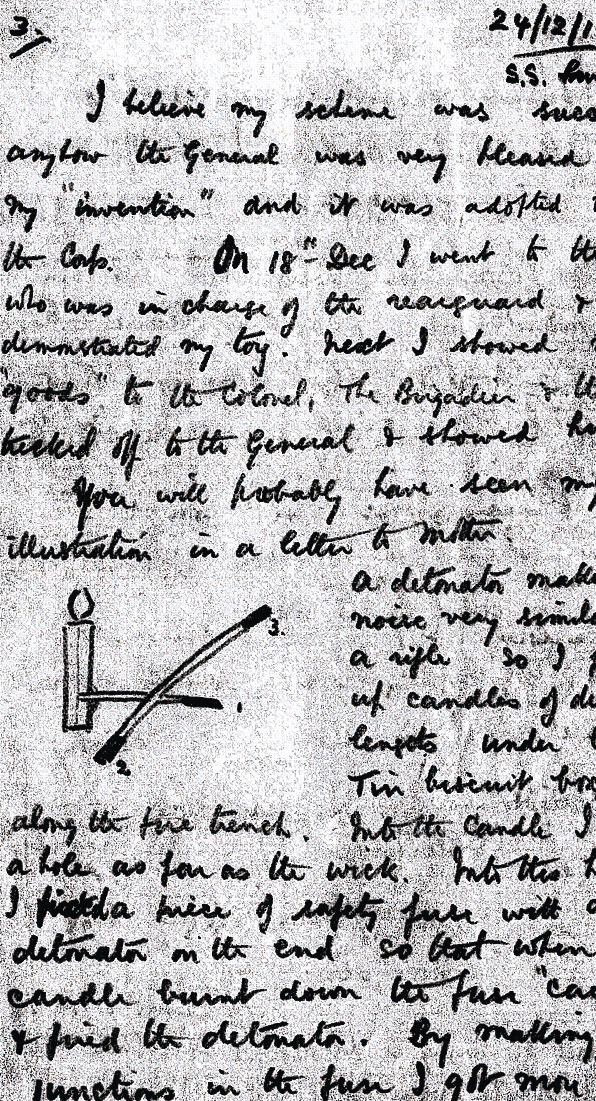 3.
24/12/1
S.S.
I believe my scheme was succ
anyhow the General was very pleased
my "invention" and it was adopted
the Corps. On 18th Dec I went to the
who was in charge of the rearguard &
demonstrated my toy. Next I showed
"goods" to the Colonel, The Brigadier & th
trekked off to the General & showed h
You will probably have seen my
illustration in a letter to Mother
A detonator make
noise very simila
a rifle so I
up candles of di
lengths under
Tin biscuit box
3.
1
2.
along the fire trench. Into the candle I
a hole as far as the wick. Into this h
I fixed a piece of safety fuse with a
detonator on the end so that when
candle burnt down the fuse "cau
& fired the detonator. By making
junctions in the fuse I got more